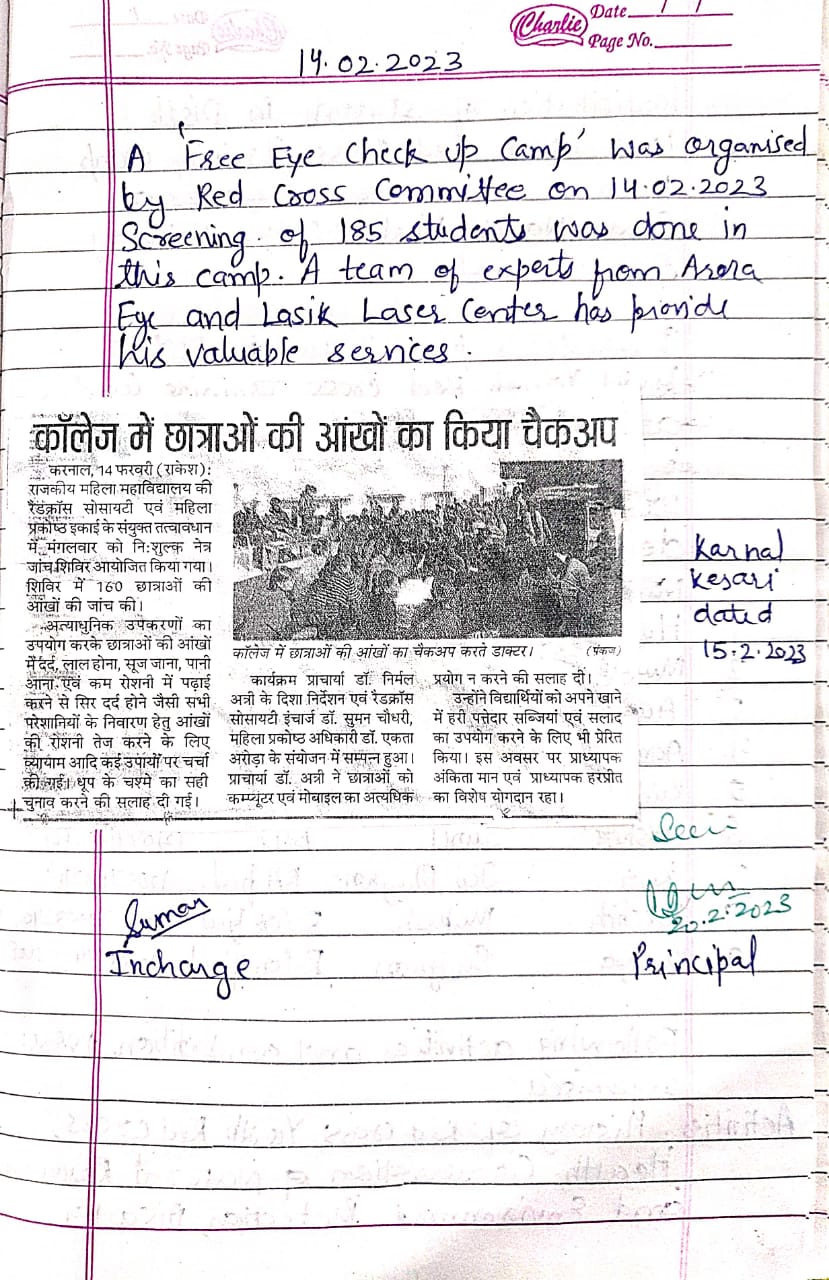 Charlie
Date
Page No.
14.02.2023
A 'Free Eye Check up Camp' was organised
by Red Cross Committee on 14.02.2023
Screening of 185 students was done in
this camp. A team of experts from Arora
Eye and Lasik Laser Center has provide
his valuable services.
कॉलेज में छात्राओं की आंखों का किया चैकअप
करनाल, 14 फरवरी (राकेश):
राजकीय महिला महाविद्यालय की
रैडक्रॉस सोसायटी एवं महिला
प्रकोष्ठ इकाई के संयुक्त तत्वावधान
में मंगलवार को नि:शुल्क नेत्र
जांच शिविर आयोजित किया गया।
शिविर में 160 छात्राओं की
आंखों की जांच की।
अत्याधुनिक उपकरणों का
उपयोग करके छात्राओं की आंखों
में दर्द, लाल होना, सूज जाना, पानी
आना एवं कम रोशनी में पढ़ाई
करने से सिर दर्द होने जैसी सभी
परेशानियों के निवारण हेतु आंखों
की रोशनी तेज करने के लिए
व्यायाम आदि कई उपायों पर चर्चा
की गई। धूप के चश्मे का सही
चुनाव करने की सलाह दी गई।
कॉलेज में छात्राओं की आंखों का चैकअप करते डाक्टर। (पंकज)
कार्यक्रम प्राचार्या डॉ. निर्मल
अत्री के दिशा निर्देशन एवं रैडक्रॉस
सोसायटी इंचार्ज डॉ. सुमन चौधरी,
महिला प्रकोष्ठ अधिकारी डॉ. एकता
अरोड़ा के संयोजन में सम्पन्न हुआ।
प्राचार्या डॉ. अत्री ने छात्राओं को
कम्प्यूटर एवं मोबाइल का अत्यधिक
प्रयोग न करने की सलाह दी।
उन्होंने विद्यार्थियों को अपने खाने
में हरी पत्तेदार सब्जियां एवं सलाद
का उपयोग करने के लिए भी प्रेरित
किया। इस अवसर पर प्राध्यापक
अंकिता मान एवं प्राध्यापक हरप्रीत
का विशेष योगदान रहा।
Karnal
Kesari
dated
15.2.2023
Seen
20.2.2023
Suman
Incharge
Principal